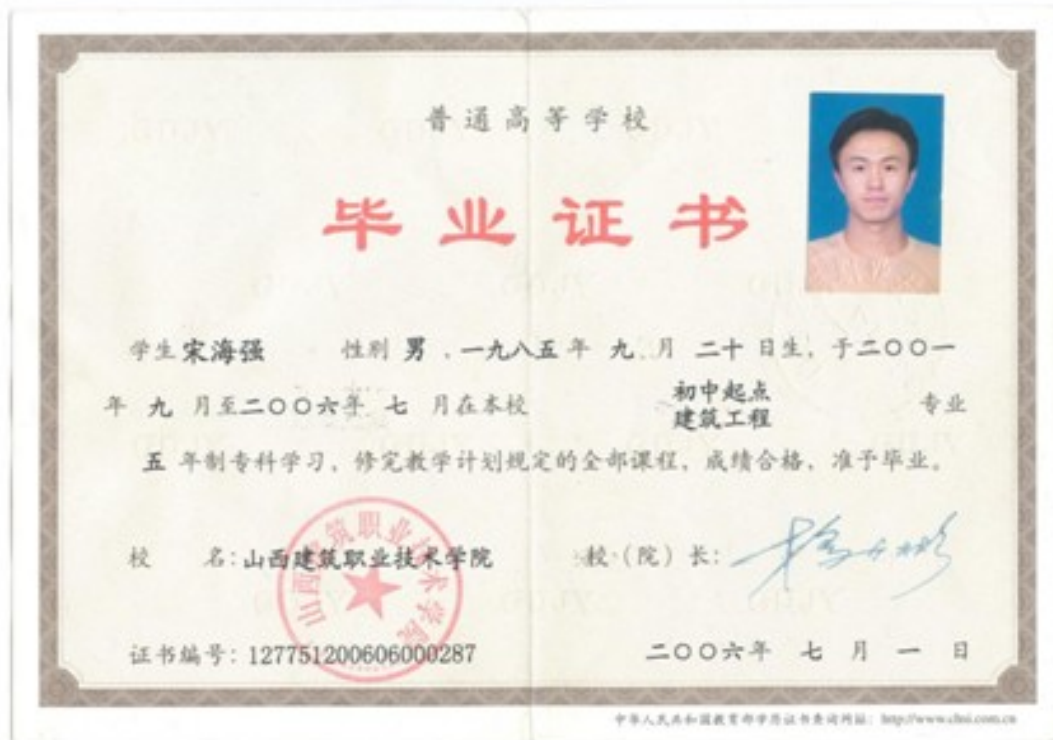 普通高等学校
毕业证书
学生 宋海强 性别 男 ，一九八五年 九 月 二十 日生，于二〇〇一
年 九 月至二〇〇六年 七 月在本校 初中起点 建筑工程 专业
五 年制专科学习，修完教学计划规定的全部课程，成绩合格，准予毕业。
校 名：山西建筑职业技术学院 校（院）长：
山西建筑职业技术学院
证书编号：127751200606000287 二〇〇六年 七 月 一 日
中华人民共和国教育部学历证书查询网站：http://www.chsi.com.cn